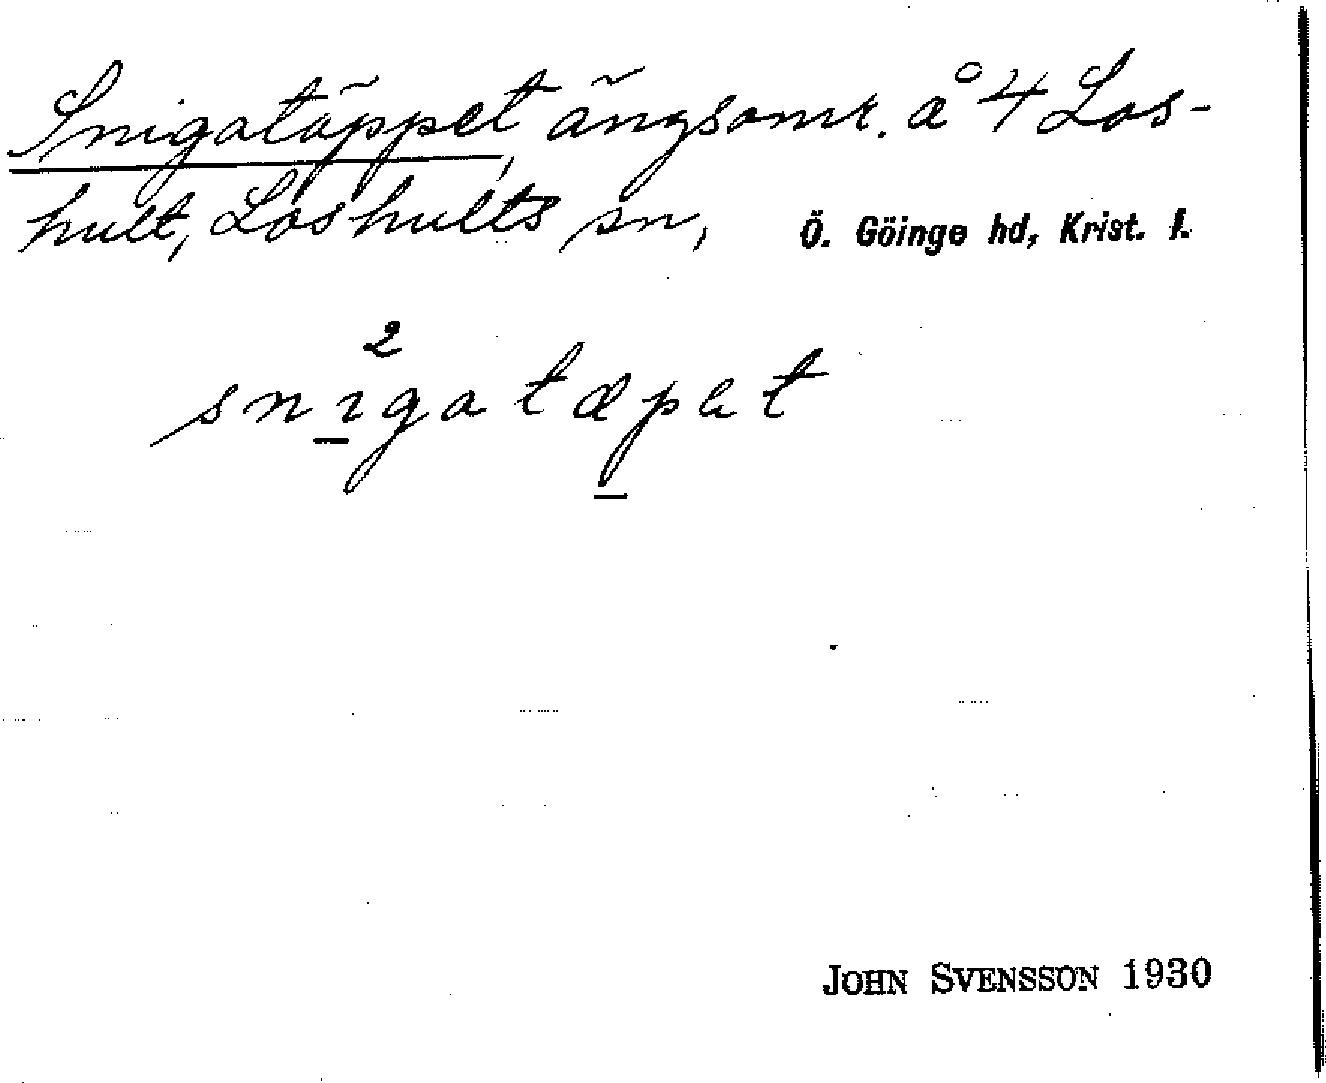 Snigatäppet, ängsomr. å 4 Los-
hult, Loshults sn, Ö. Göinge hd, Krist. l.
2
snıgatæpet
JOHN SVENSSON 1930